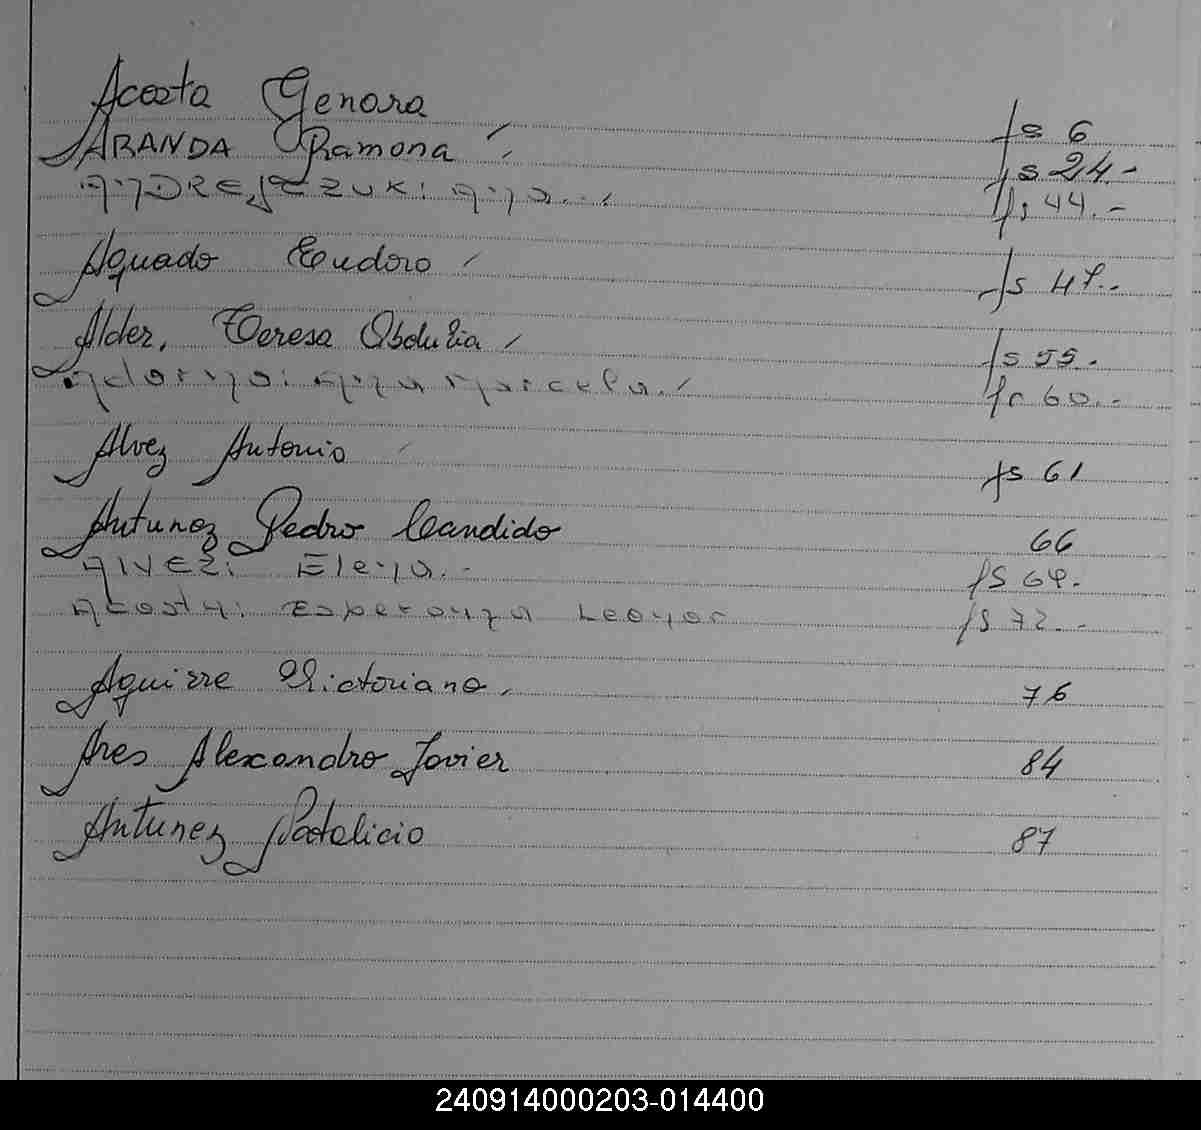 Acosta Genara fs 6
ARANDA Ramona fs 24.-
ANDREJCZUK: Ana... fs 44.-
Aguado Eudoro fs 47.-
Alder, Teresa Obdulia fs 55.
Adorno: Anna Marcela. fs 60.-
Alvez Antonio fs 61
Antunez Pedro Candido 66
AlvEz: Elena.- fs 69.-
Acosta: Esperanza Leonor fs 72.-
Aguirre Victoriano. 76
Ares Alexandro Javier 84
Antunez 87
240914000203-014400